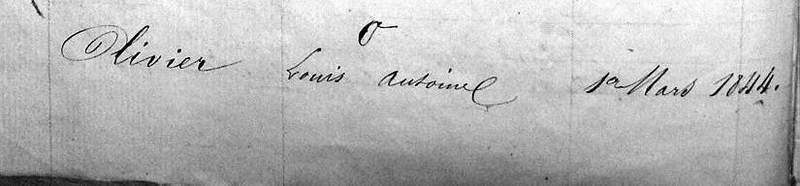 O
Olivier Louis Antoine 1er Mars 1844.